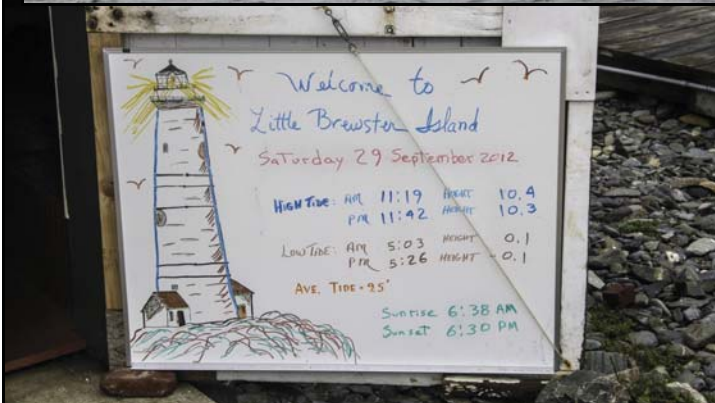 Welcome to
Little Brewster Island
Saturday 29 September 2012
HIGH TIDE: AM 11:19 HEIGHT 10.4
PM 11:42 HEIGHT 10.3
LOW TIDE: AM 5:03 HEIGHT 0.1
PM 5:26 HEIGHT -0.1
AVE. TIDE
Sunrise 6:38 AM
Sunset 6:30 PM